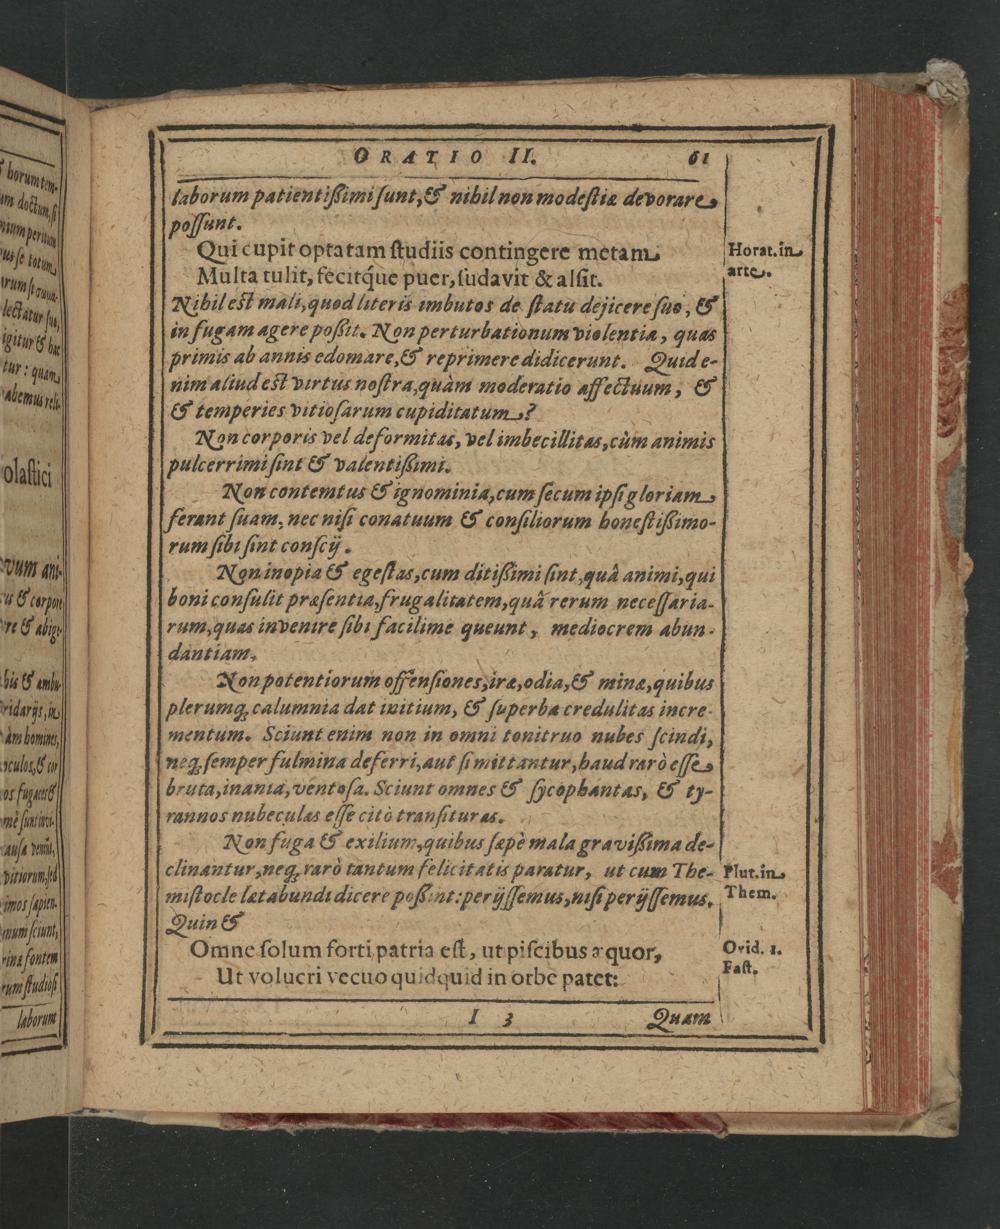 ORATIO II. 61
laborum patientißimi ſunt, & nihil non modeſtiæ devorare
poſſunt.
Qui cupit optatam ſtudiis contingere metam
Multa tulit, fecitq́ue puer, ſudavit & alſit.
Horat. in
arte.
Nihil est mali, quod literis imbutos de ſtatu dejicere ſuo, &
in fugam agere poßit. Non perturbationum violentia, quas
primis ab annis edomare, & reprimere didicerunt. Quid e-
nim aliud est virtus noſtra, quàm moderatio affectuum, &
& temperies vitioſarum cupiditatum?
Non corporis vel deformitas, vel imbecillitas, cùm animis
pulcerrimi ſint & valentißimi.
Non contemtus & ignominia, cum ſecum ipſi gloriam
ferant ſuam, nec niſi conatuum & conſiliorum honeſtißimo-
rum ſibi ſint conſcij.
Non inopia & egeſtas, cum ditißimi ſint, quâ animi, qui
boni conſulit præſentia, frugalitatem, quâ rerum neceſſaria-
rum, quas invenire ſibi facilime queunt, mediocrem abun-
dantiam.
Non potentiorum offenſiones, iræ, odia, & minæ, quibus
plerumq; calumnia dat initium, & ſuperba credulitas incre-
mentum. Sciunt enim non in omni tonitruo nubes ſcindi,
neq; ſemper fulmina deferri, aut ſi mittantur, haud rarò eſſe
bruta, inania, ventoſa. Sciunt omnes & ſycophantas, & ty-
rannos nubeculas eſſe citò tranſituras.
Non fuga & exilium, quibus ſæpè mala gravißima de-
clinantur, neq; rarò tantum felicitatis paratur, ut cum The-
miſtocle lætabundi dicere poßint: perijſſemus, niſi perijſſemus.
Plut. in
Them.
Quin &
Omne ſolum forti patria eſt, ut piſcibus æquor,
Ut volucri vecuo quidquid in orbe patet:
Ovid. 1.
Faſt.
I 3 Quam
olaſtici
laborum